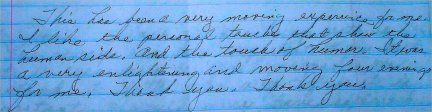 This has been a very moving experience for me.
I like the personal touches that show the
human side. And the touch of humor. It was
a very enlightening and moving four evenings
for me. Thank you. Thank you.